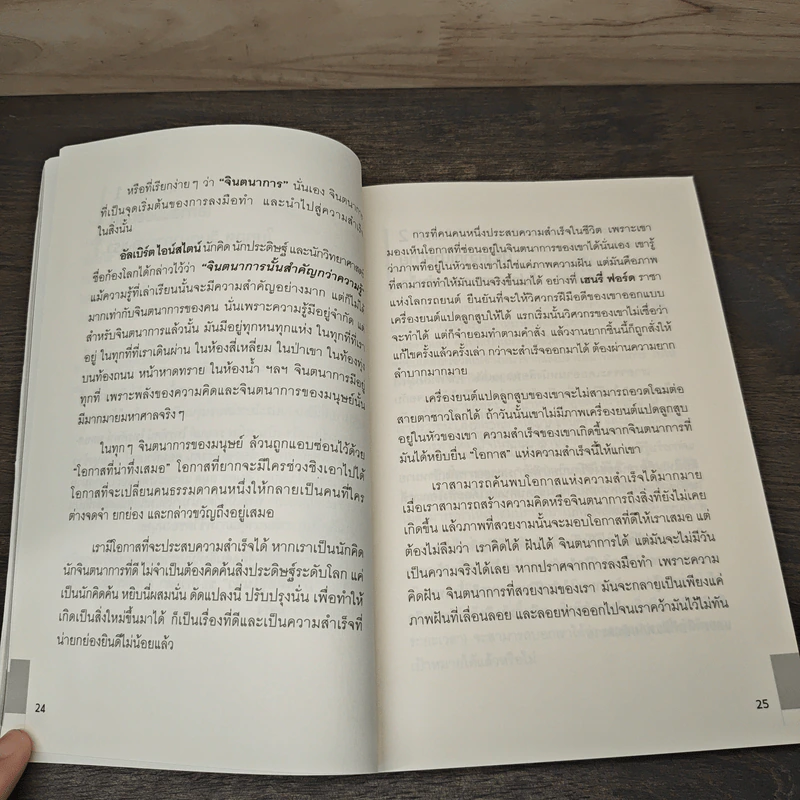 หรือที่เรียกง่าย ๆ ว่า “จินตนาการ” นั่นเอง จินตนาการ
ที่เป็นจุดเริ่มต้นของการลงมือทำ และนำไปสู่ความสำเร็จ
ในสิ่งนั้น
อัลเบิร์ต ไอน์สไตน์ นักคิด นักประดิษฐ์ และนักวิทยาศาสตร์
ชื่อก้องโลกได้กล่าวไว้ว่า “จินตนาการนั้นสำคัญกว่าความรู้
แม้ความรู้ที่เล่าเรียนนั้นจะมีความสำคัญอย่างมาก แต่ก็ไม่ได้
มากเท่ากับจินตนาการของคน นั่นเพราะความรู้มีอยู่จำกัด แต่
สำหรับจินตนาการแล้วนั้น มันมีอยู่ทุกหนทุกแห่ง ในทุกที่ที่เรา
อยู่ ในทุกที่ที่เราเดินผ่าน ในห้องสี่เหลี่ยม ในป่าเขา ในท้องทุ่ง
บนท้องถนน หน้าหาดทราย ในห้องน้ำ ฯลฯ จินตนาการมีอยู่
ทุกที่ เพราะพลังของความคิดและจินตนาการของมนุษย์นั้น
มีมากมายมหาศาลจริง ๆ
ในทุก ๆ จินตนาการของมนุษย์ ล้วนถูกแอบซ่อนไว้ด้วย
“โอกาสที่น่าทึ่งเสมอ” โอกาสที่ยากจะมีใครช่วงชิงเอาไปได้
โอกาสที่จะเปลี่ยนคนธรรมดาคนหนึ่งให้กลายเป็นคนที่ใคร
ต่างจดจำ ยกย่อง และกล่าวขวัญถึงอยู่เสมอ
เรามีโอกาสที่จะประสบความสำเร็จได้ หากเราเป็นนักคิด
นักจินตนาการที่ดี ไม่จำเป็นต้องคิดค้นสิ่งประดิษฐ์ระดับโลก แค่
เป็นนักคิดค้น หยิบนี่ผสมนั่น ดัดแปลงนี่ ปรับปรุงนั่น เพื่อทำให้
เกิดเป็นสิ่งใหม่ขึ้นมาได้ ก็เป็นเรื่องที่ดีและเป็นความสำเร็จที่
น่ายกย่องยินดีไม่น้อยแล้ว
24
การที่คนคนหนึ่งประสบความสำเร็จในชีวิต เพราะเขา
มองเห็นโอกาสที่ซ่อนอยู่ในจินตนาการของเขาได้นั่นเอง เขารู้
ว่าภาพที่อยู่ในหัวของเขาไม่ใช่แค่ภาพความฝัน แต่มันคือภาพ
ที่สามารถทำให้มันเป็นจริงขึ้นมาได้ อย่างที่ เฮนรี่ ฟอร์ด ราชา
แห่งโลกรถยนต์ ยืนยันที่จะให้วิศวกรฝีมือดีของเขาออกแบบ
เครื่องยนต์แปดลูกสูบให้ได้ แรกเริ่มนั้นวิศวกรของเขาไม่เชื่อว่า
จะทำได้ แต่ก็จำยอมทำตามคำสั่ง แล้วงานยากชิ้นนี้ก็ถูกสั่งให้
แก้ไขครั้งแล้วครั้งเล่า กว่าจะสำเร็จออกมาได้ ต้องผ่านความยาก
ลำบากมากมาย
เครื่องยนต์แปดลูกสูบของเขาจะไม่สามารถอวดโฉมต่อ
สายตาชาวโลกได้ ถ้าวันนั้นเขาไม่มีภาพเครื่องยนต์แปดลูกสูบ
อยู่ในหัวของเขา ความสำเร็จของเขาเกิดขึ้นจากจินตนาการที่
มันได้หยิบยื่น “โอกาส” แห่งความสำเร็จนี้ให้แก่เขา
เราสามารถค้นพบโอกาสแห่งความสำเร็จได้มากมาย
เมื่อเราสามารถสร้างความคิดหรือจินตนาการถึงสิ่งที่ยังไม่เคย
เกิดขึ้น แล้วภาพที่สวยงามนั้นจะมอบโอกาสที่ดีให้เราเสมอ แต่
ต้องไม่ลืมว่า เราคิดได้ ฝันได้ จินตนาการได้ แต่มันจะไม่มีวัน
เป็นความจริงได้เลย หากปราศจากการลงมือทำ เพราะความ
คิดฝัน จินตนาการที่สวยงามของเรา มันจะกลายเป็นเพียงแค่
ภาพฝันที่เลื่อนลอย และลอยห่างออกไปจนเราคว้ามันไว้ไม่ทัน
25